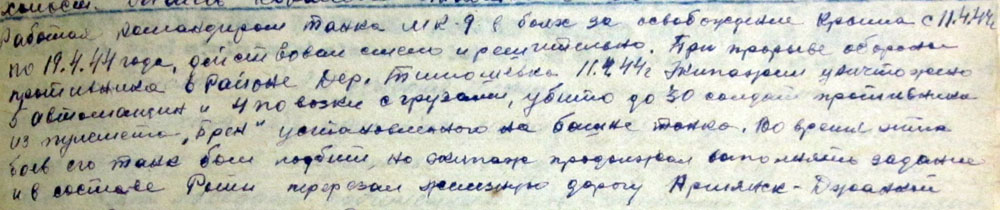 Работая командиром танка МК-9 в боях за освобождение Крыма с 11.4.44г
по 19.4.44 года, действовал смело и решительно. При прорыве обороны
противника в районе дер. Тимошевка 11.4.44г экипажем уничтожено
5 автомашин и 4 повозки с грузами, убито до 30 солдат противника
из пулемета „Брен" установленного на башне танка. Во время этих
боев его танк был подбит, но экипаж продолжал выполнять задание
и в составе роты перерезал железную дорогу Армянск - Джанкой